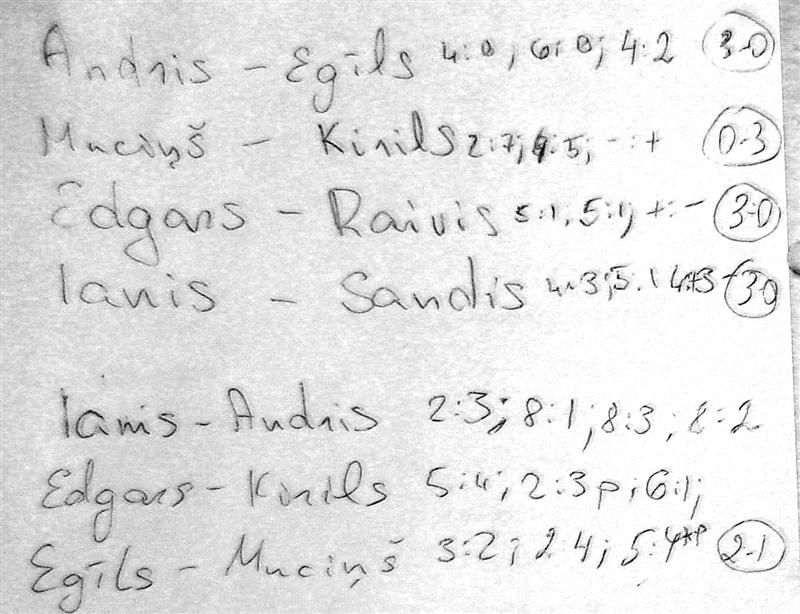 Andris - Egīls 4:0; 6:0; 4:2 3-0
Muciņš - Kirils 2:7; 4:5; -:+ 0-3
Edgars - Raivis 5:1, 5:1; +:- 3-0
Janis - Sandis 4:3; 5:1 3-0
Janis - Andris 2:3; 8:1; 8:3; 8:2
Edgars - Kirils 5:4; 2:3p; 6:1;
Egīls - Muciņš 3:2; 2:4; 5:4 2-1